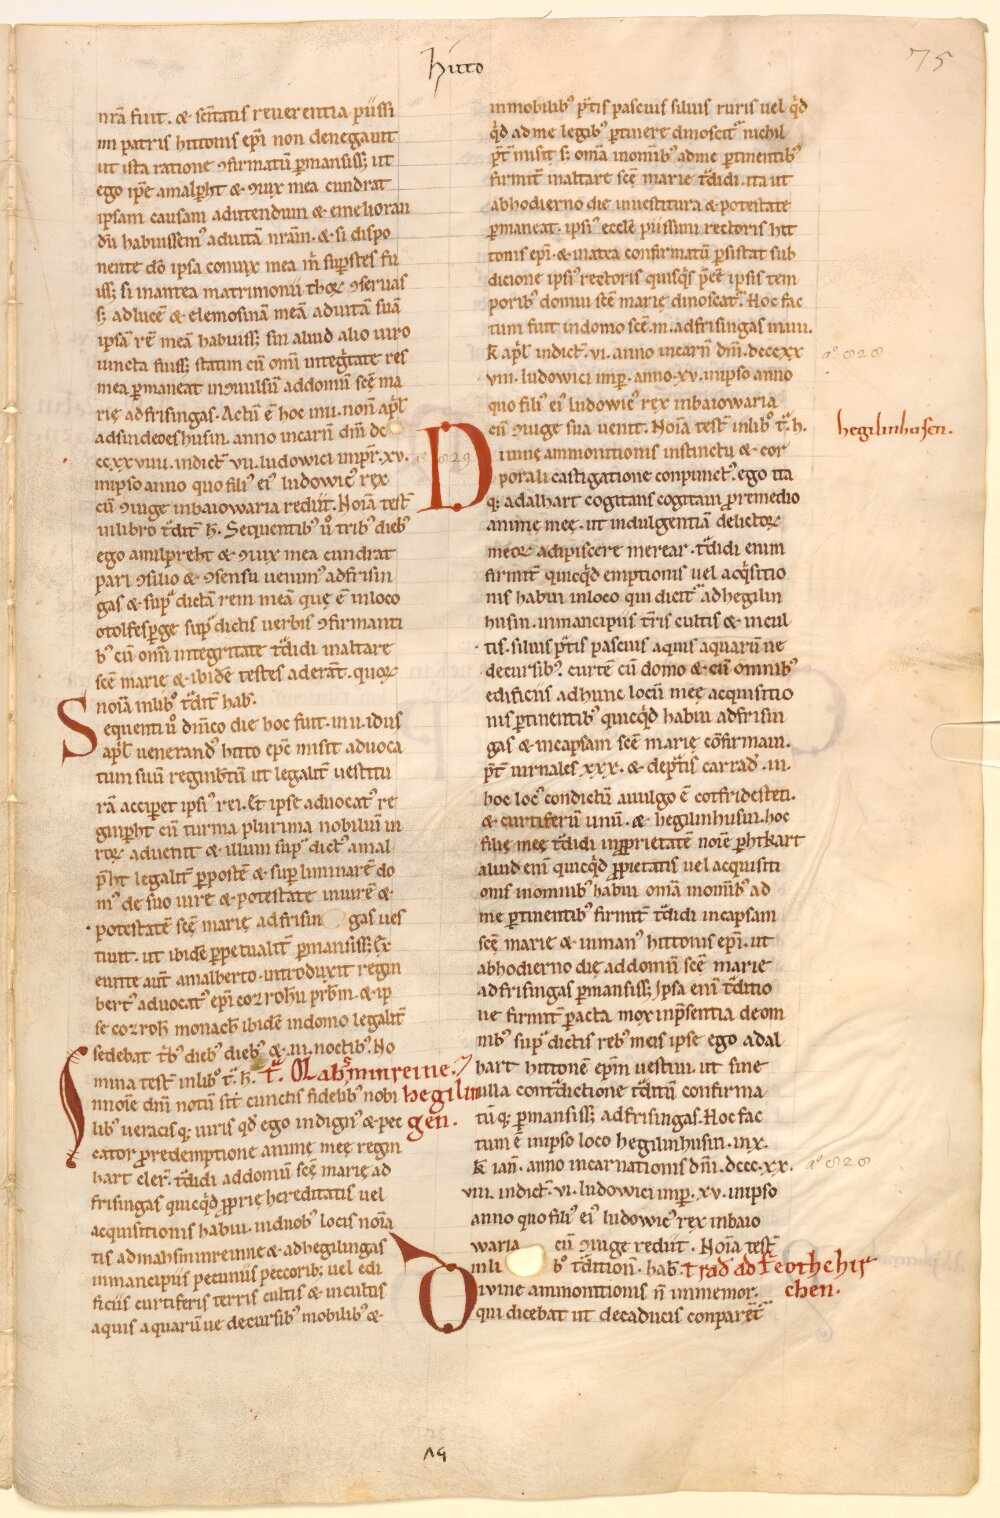 hitto
75
nrā fuit. & sc̄itatis reuerentia piissi
mi patris hittonis ep̄i non denegauit
ut ista ratione ꝯfirmatū p̱mansiss; ut
ego ip̄e amalp̱ht & ꝯiux mea cundrat
ipsam causam adutendum & emelioran
dū habuissemꝰ aduitā nrām. & si dispo
nente dō ipsa coniux mea m̄ sup̱stes fu
iss; si inantea matrimonii thoꝝ ꝯseruas
s; adlucē & elemosinā meā aduitā suā
ipsā rē meā habuiss; sin aliud alio uiro
iuncta fuiss; statim cū om̄i integͥtate res
mea p̱maneat inꝯuulsū addomū sc̄ę ma
rię adfrisingas. Actū ē hoc iniī. non̄ ap̄l
adsindeoeshusin. anno incarn̄ dn̄i dc
ccxxviiii. indict̄ vii. ludowici imp̱r̄. xv.
inipso anno quo filiꝰ eiꝰ ludowicꝰ rex
cū ꝯiuge inbaiowaria rediit. Noīa test̄
inlibro t̄dit̄ h̄. Sequentibꝰ ů tribꝰ diebꝰ
ego amilpreht & ꝯiux mea cundrat
pari ꝯsilio & ꝯsensu uenimꝰ adfrisin
gas & supͣ dictā rem meā quę ē inloco
otolfesp̱ge supͣ dictis uerbis ꝯfirmanti
bꝰ cū om̄i integritate t̄didi inaltare
sc̄e marię & ibidē testes aderant̄. quoꝝ
noīa inlibͦ t̄dit̄ hab.
Sequenti ů dn̄ico die hoc fuit. iniī. idus
ap̄l uenerandꝰ hitto ep̄c misit aduoca
tum suū reginb̄tū ut legalit̄ uestitu
rā accip̱et ipsiꝰ rei. Et ipse aduocatꝰ re
ginp̱ht cū turma plurima nobiliū ui
roꝝ aduenit & illum supͣ dictꝰ amal
p̱ht legalit̄ p̱postē & sup̱ liminarē do
mꝰ de suo iure & potestate iniurē &
potestatē sc̄ę marię adfrisin gas ues
tiuit. ut ibidē p̱petualit̄ p̱mansiss; Ex
eunte aut̄ amalberto. introduxit regin
bertꝰ aduocatꝰ ep̄i cozrohū pr̄bm̄. & ip
se cozroh̄ monach̄ ibidē indomo legalit̄
sedebat t̄bꝰ diebꝰ diebꝰ &. iii. noctibꝰ. No
mina test̄ inlibͦ t̄. h̄. t̄. Mahsminreine. &
Innoīe dn̄i notū sit̄ cunctis fidelibꝰ nobi hegilin
libꝰ ueracisq; uiris qd̄ ego indignꝰ & pec gen.
cator p̱redemptione animę meę regin
hart cler̄. t̄didi addomū sc̄ę marię ad
frisingas quicqͥd pp̱rię hereditatis uel
acquisitionis habui. induobꝰ locis noīa
tis admahsminreinne & adhegilingas
inmancipiis pecuniis peccorib; uel edi
ficiis curtiferis terris cultis & incultis
aquis aquarūue decursibꝰ mobilibꝰ &
inmobilibꝰ p̱tis pascuis siluis ruris uel qͥd
qͥd adme legibꝰ p̱tinere dinoscit̄ nichil
p̱t̄ misit s; om̄a inom̄ibꝰ adme p̱tinentibꝰ
firmit̄ inaltare sc̄e marie t̄didi. ita ut
abhodierno die inuestitura & potestate
p̱maneat. ipsiꝰ eccle piissimi rectoris hit
tonis ep̄i. & inatea confirmatū p̱sistat sub
dicione ipsiꝰ rectoris quisqͥs p̱ē ipsis tem
poribꝰ domui sc̄ę marię dinoscat̄. Hoc fac
tum fuit indomo sc̄e. m. adfrisingas iniiii.
k̄ ap̄l indict̄. vi. anno incarn̄ dn̄i. dcccxx
viii. ludowici imp̱. anno. xv. inipso anno
quo filiꝰ eiꝰ ludowicꝰ rex inbaiowaria
cū ꝯiuge sua uenit. Noīa test̄ inlibͦ t̄. h.
Diuinę ammonitionis instinctu & cor
porali castigatione conpunctꝰ. ego ita
q; adalhart cogitans cogitaui p̱remedio
animę meę. ut indulgentiā delictoꝝ
meoꝝ adipiscere merear. t̄didi enim
firmit̄ quicqͥd emptionis uel acqͥsitio
nis habui inloco qui dicit̄ adhegilin
husin. inmancipiis t̄ris cultis & incul
tis. siluis p̱tis pascuis aquis aquarū ue
decursibꝰ. curtē cū domo & cū omnibꝰ
edificiis adhunc locū meę acquisitio
nis p̱tinentibꝰ quicqͥd habui adfrisin
gas & incapsam sc̄e marię cōfirmaui.
p̱t̄ iurnales xxx. & dep̱tis carrad̄. iii.
hoc locꝰ condictū auulgo ē cotfridesteti.
& curtiferū unū. & hegilinhusin. hoc
filię meę t̄didi inpp̱rietatē noīe p̱htkart
aliud eni quicqͥd pp̱rietatis uel acquisiti
onis inomnibꝰ habui om̄a inom̄ibꝰ ad
me p̱tinentibꝰ firmit̄ t̄didi incapsam
sc̄e marie & inmanꝰ hittonis ep̄i. ut
abhodierno die addomū sc̄e marie
adfrisingas p̱mansiss; Ipsa eni t̄ditio
ue firmit̄ p̱acta mox inp̱sentia deom
nibꝰ supͣ dictis rebꝰ meis ipse ego adal
hart hittonē ep̄m uestiui. ut sine
ulla cont̄dictione t̄ditū confirma
tū q; p̱mansiss; adfrisingas. Hoc fac
tum ē inipso loco hegilinhusin. inx.
k̄ ian̄. anno incarnationis dn̄i. dccc. xx.
viii. indict̄. vi. ludowici imp̱. xv. inipso
anno quo filiꝰ eiꝰ ludowicꝰ rex inbaio
waria cū ꝯiuge rediit. Noīa test̄
inli bͦ t̄ditioni. hab. trad̄ ad feothchir
Diuine ammonitionis n̄ inmemor. chen.
qui dicebat ut decaducis conparet̄
aͦ 828
hegilinhusen.
aͦ 829
aͦ 828